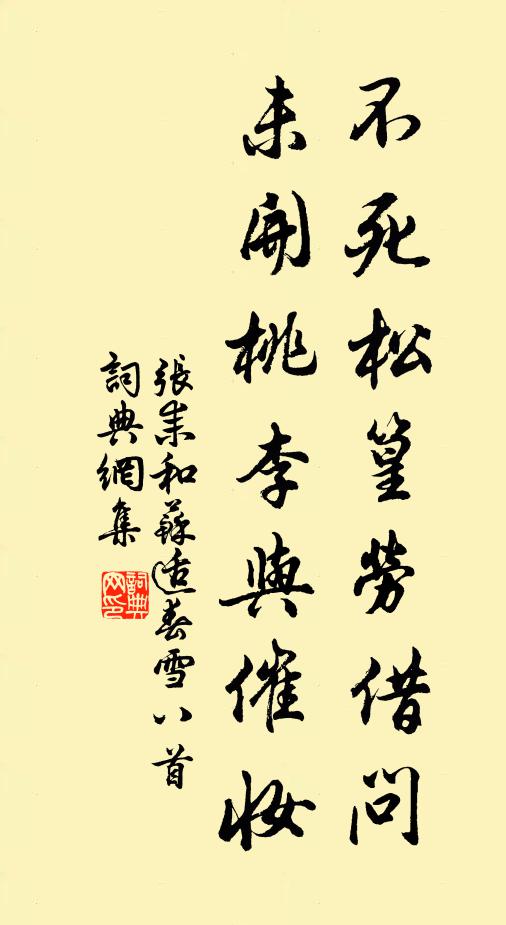 不死松篁勞借問
未開桃李與催妝
張耒和蘇适春雪八首
詞典網集
詞典網印